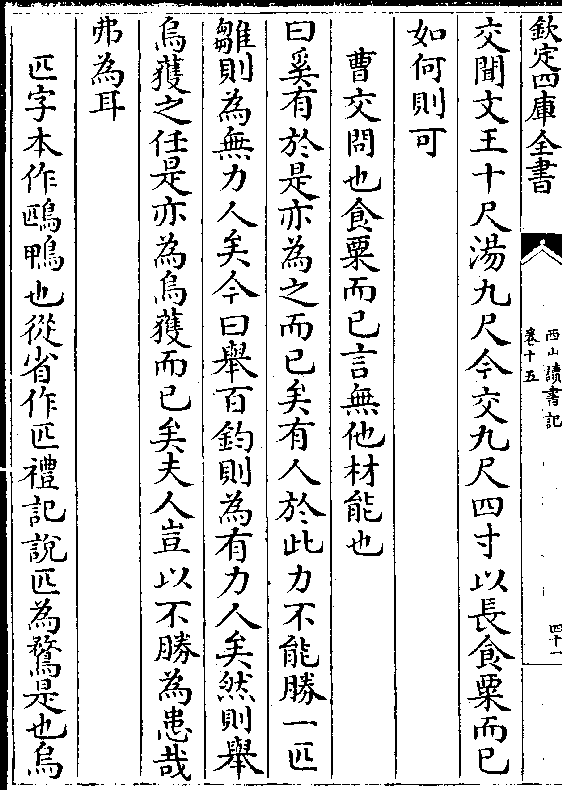 欽定四庫全書
西山讀書記
卷十五
四十一
交聞文王十尺湯九尺今交九尺四寸以長食粟而已
如何則可
曹交問也食粟而已言無他材能也
曰奚有於是亦為之而已矣有人於此力不能勝一匹
雛則為無力人矣今曰舉百鈞則為有力人矣然則舉
烏獲之任是亦為烏獲而已矣夫人豈以不勝為患哉
弗為耳
匹字本作鴄鴨也從省作匹禮記說匹為鶩是也烏